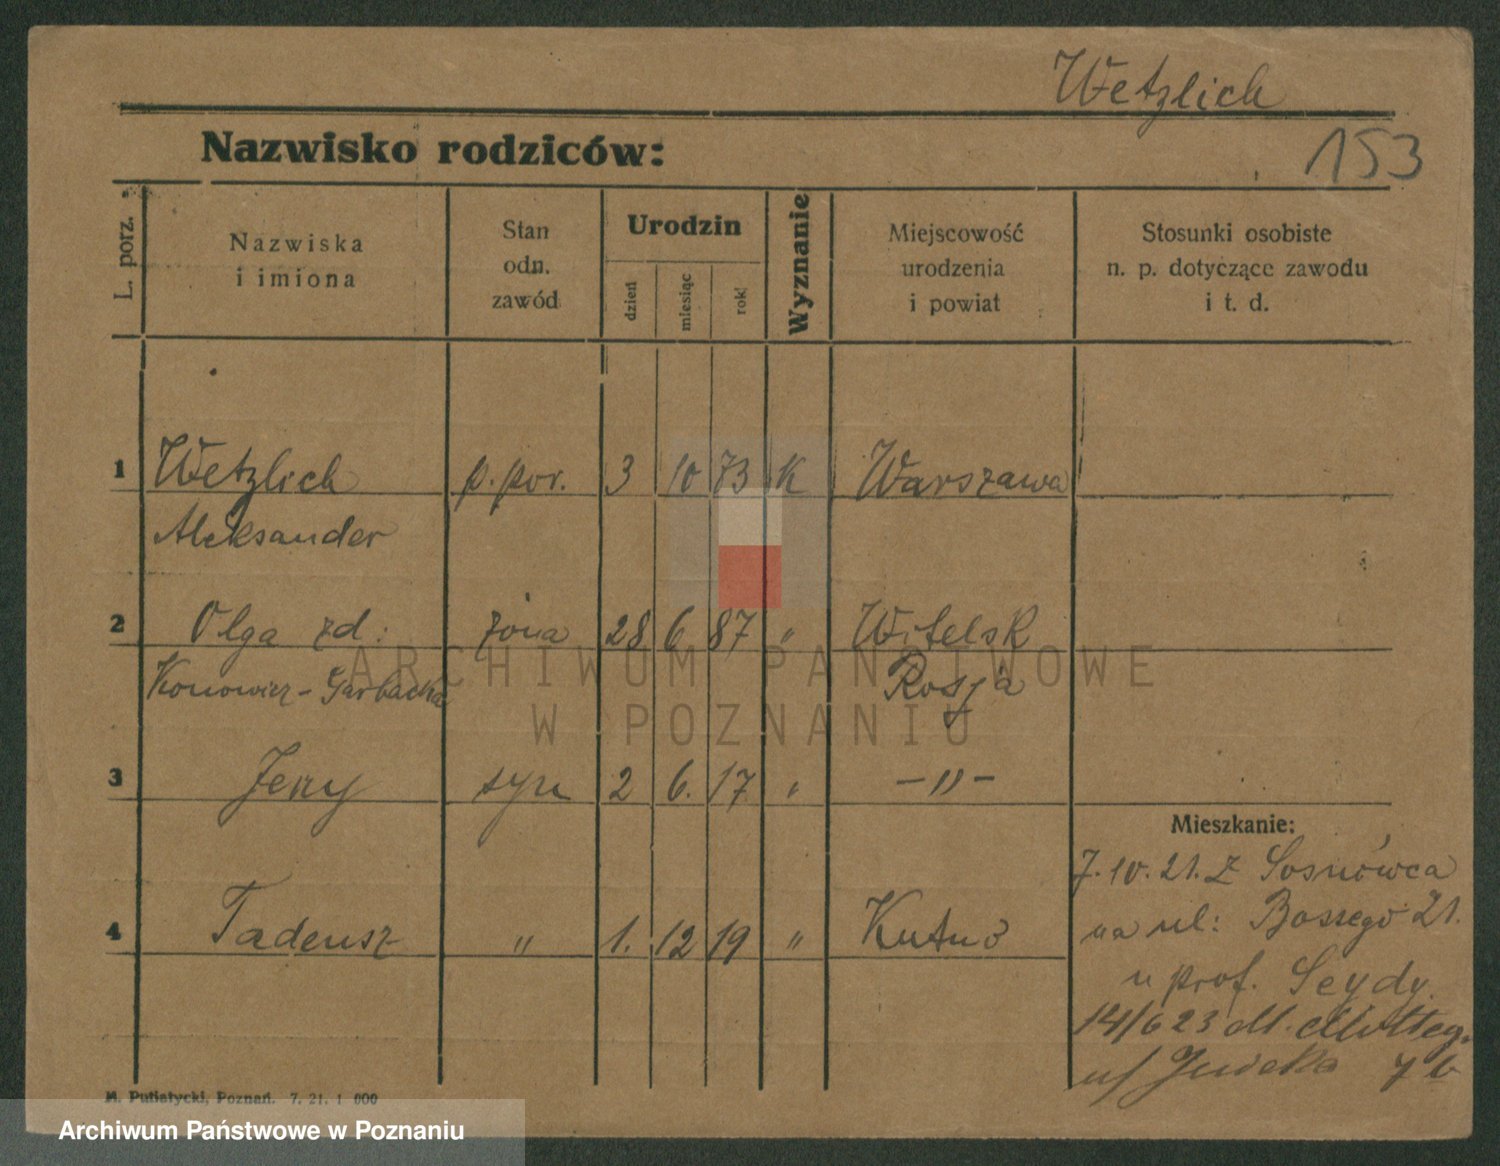 Wetzlich
153
Nazwisko rodziców:
L. porz.
Nazwiska
i imiona
Stan
odn.
zawód
Urodzin
dzień
miesiąc
rok
Wyznanie
Miejscowość
urodzenia
i powiat
Stosunki osobiste
n. p. dotyczące zawodu
i t. d.
1 Wetzlich p. por. 3 10 73 K Warszawa
Aleksander
2 Olga zd: żona 28 6 87 " Witelsk
Konowicz - Garbacka Rosja
3 Jerzy syn 2 6. 17 " - " -
Mieszkanie:
7.10.21. Z Sosnówca
4 Tadeusz " 1. 12 19 " Kutno
na ul: Boszego 21.
u prof. Seydy
14/6 23
7 b
M. Putiatycki, Poznań. 7. 21. 1 000
ARCHIWUM PAŃSTWOWE
W POZNANIU
Archiwum Państwowe w Poznaniu